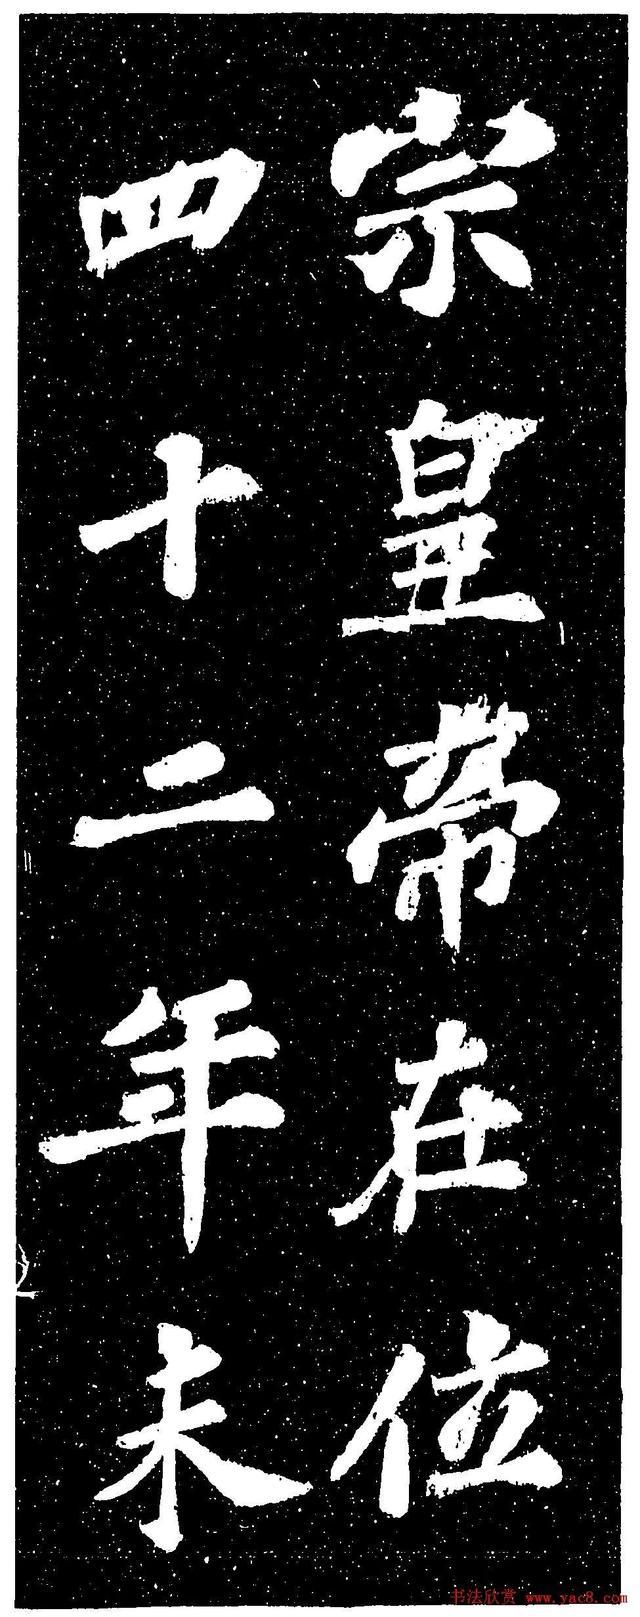 宗皇帝在位
四十二年未
书法欣赏 www.yac8.com